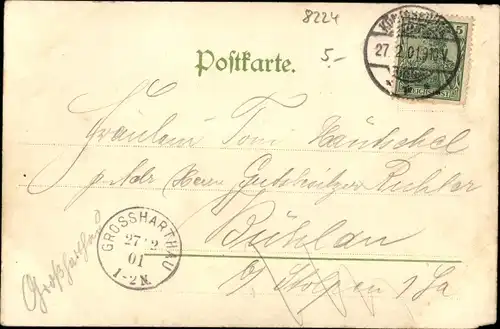 8224
5.-
27. 2. 01. 9-10 V.
5
Postkarte.
Fräulein Toni Häntschel
p. Adr. Herrn Gutsbesitzer Richter
Bühlau
b/ Stolpen i/Sa
GROSSHARTHAU
27 2
01
1-2 N.
Großharthau